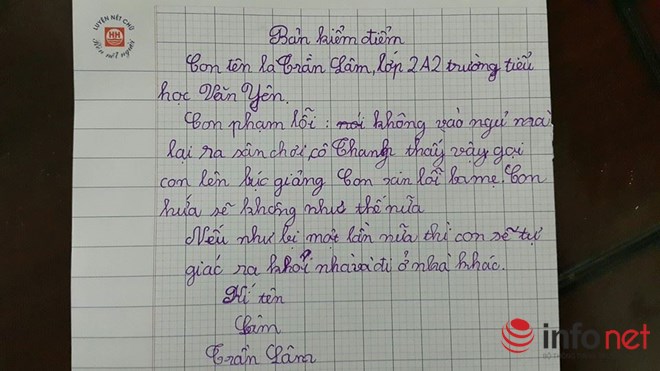 LUYỆN NÉT CHỮ
HH
Rèn nết người
Bản kiểm điểm
Con tên la Trần Lâm, lớp 2A2 trường tiểu
học Văn Yên.
Con phạm lỗi : không vào ngủ mà
lại ra sân chơi cô Thanh thấy vậy gọi
con lên bục giảng Con xin lỗi ba mẹ. Con
hứa sẽ không như thế nữa
Nếu như bị một lần nữa thì con sẽ tự
giác ra khỏi nhà và đi ở nhà khác.
Kí tên
Lâm
Trần Lâm
infonet